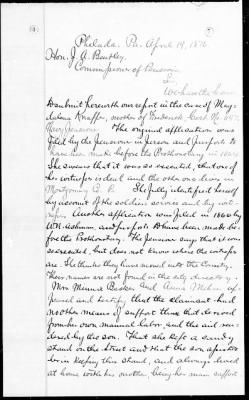 Philada. Pa. April 19, 1876
Hon. J. A. Bentley,
Commissioner of Pensions
Sir
I submit herewith our report in the case of Mag-
dalena Knaffer, mother of Frederick, Cert. No.
Navy Pension. The original application was
filed by the Pensioner in person and purports to
have been made before the Prothonotary in
She swears that it was so executed, that one of
her witnesses is dead and the other one lives in
Montgomery C. P. She fully identified herself
by account of the soldiers services and by wit-
nesses. Another application was filed in 1866 by
W. W. Ashman, and purports to have been made be-
fore the Prothonotary. The pensioner says that it was
so executed, but does not know where the witnesses
are. She thinks they have moved into the Country.
Their names are not found in the city directory.
Mrs Minna Becker and Anna Melin ap-
peared and testify that the claimant had
no other means of support than that derived
from her own manual labor, and the aid ren-
dered by the son. That she kept a candy
stand on the street and that the son assisted
her in keeping this stand, and always lived
at home with his mother, being her main support